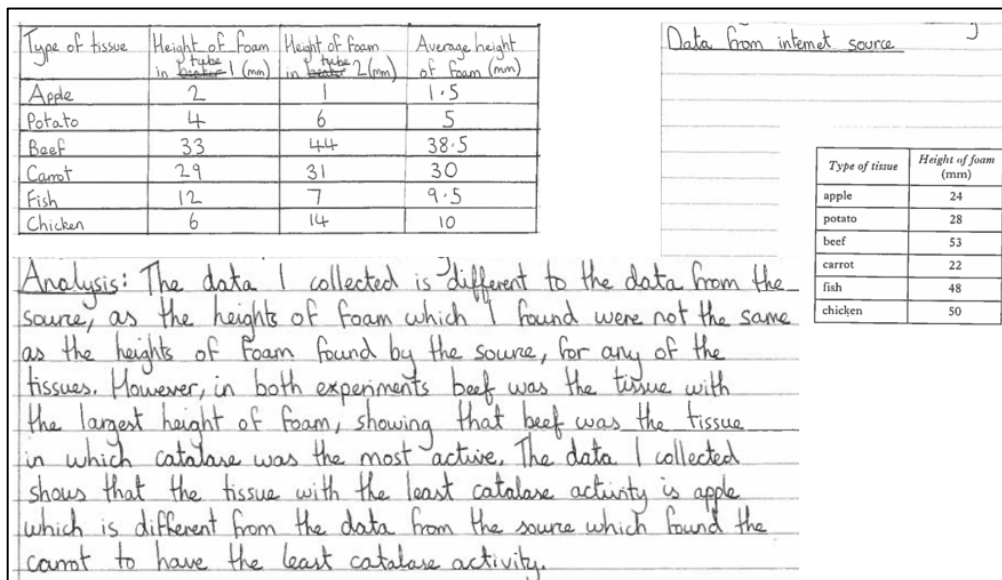 Type of tissue Height of foam in tube 1 (mm) Height of foam in tube 2 (mm) Average height of foam (mm)
Apple 2 1 1.5
Potato 4 6 5
Beef 33 44 38.5
Carrot 29 31 30
Fish 12 7 9.5
Chicken 6 14 10
Data from internet source
Type of tissue Height of foam (mm)
apple 24
potato 28
beef 53
carrot 22
fish 48
chicken 50
Analysis: The data I collected is different to the data from the
source, as the heights of foam which I found were not the same
as the heights of foam found by the source, for any of the
tissues. However, in both experiments beef was the tissue with
the largest height of foam, showing that beef was the tissue
in which catalase was the most active. The data I collected
shows that the tissue with the least catalase activity is apple
which is different from the data from the source which found the
carrot to have the least catalase activity.